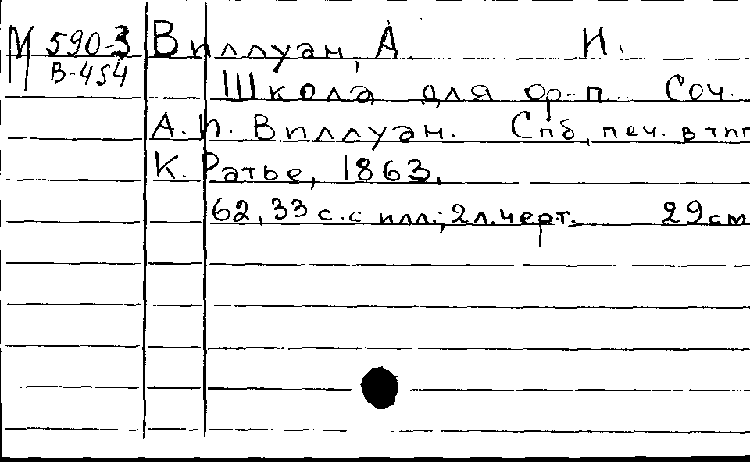 М 590-3 Виллуан, А. И.
В-454
Школа для ф-п. Соч.
А. И. Виллуан. Спб, печ. в тип
К. Ратье, 1863.
62, 33 с. с илл.; 2 л. черт. 29 см